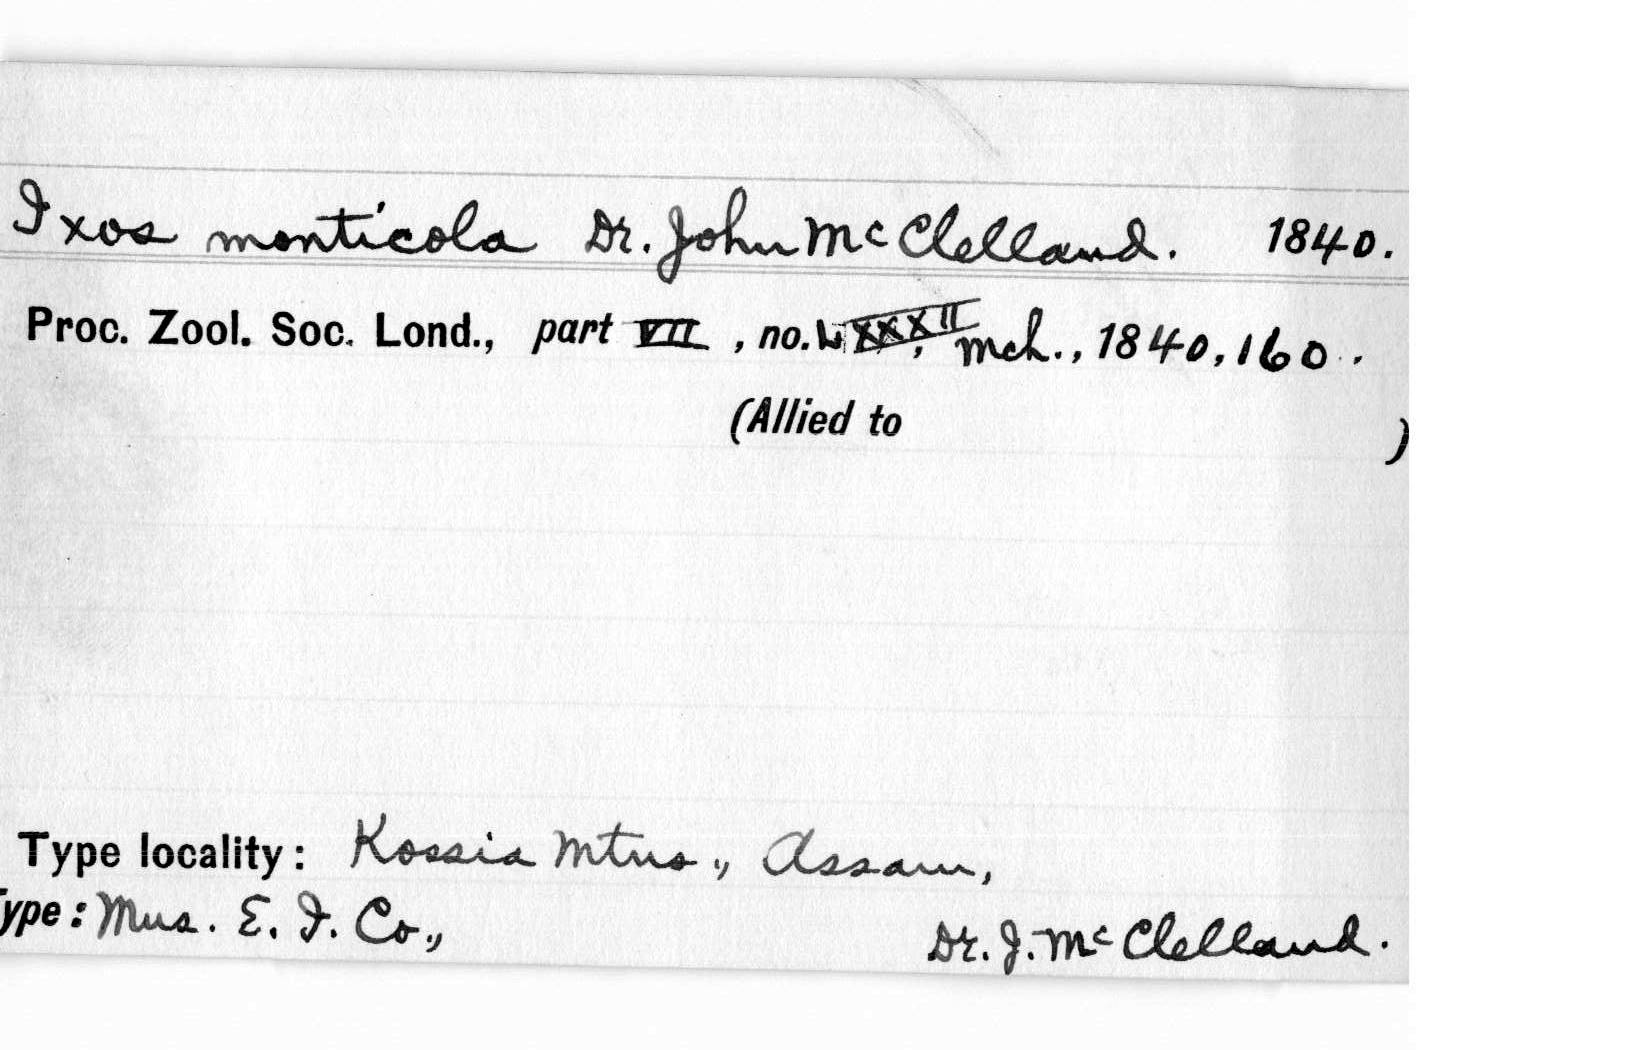 Ixos monticola Dr. John McClelland. 1840.
Proc. Zool. Soc. Lond., part VII, no. LXXXII, Mch., 1840, 160.
(Allied to )
Type locality: Kossia Mtns., Assam,
Type: Mus. E. I. Co., Dr. J. McClelland.